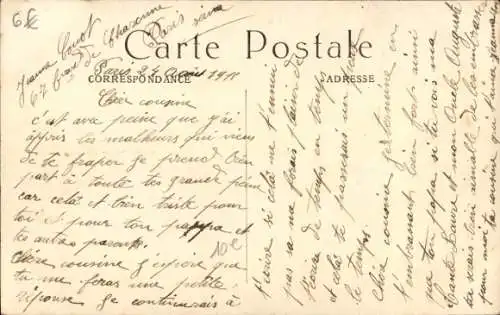 6€
Jeanne
67 Bould de Charonne
Paris 
Carte Postale
CORRESPONDANCE
ADRESSE
Paris 24 Aout 1918
Chère cousine
c'est avec peine que j'ai
appris les malheurs qui vient
de te fraper je prend bien
part à toute tes grande peine
car celà et bien triste pour
toi et pour ton pappa et
tes autres parents.
Chère cousine j'espère que
tu me feras une petite
réponse je continurais à
10€
t'ecrire si celà ne t'ennui
pas sa me ferais plaisir de
t'ecrire de temps en temps
et celà te passerais un peut
le temps.
Chère cousine je termine en
t'embrassant bien fort ainsi
que ton papa si tu vois ma
tante Laure et mon Oncle Auguste
tu serais bien aimable de les embrasser
pour moi